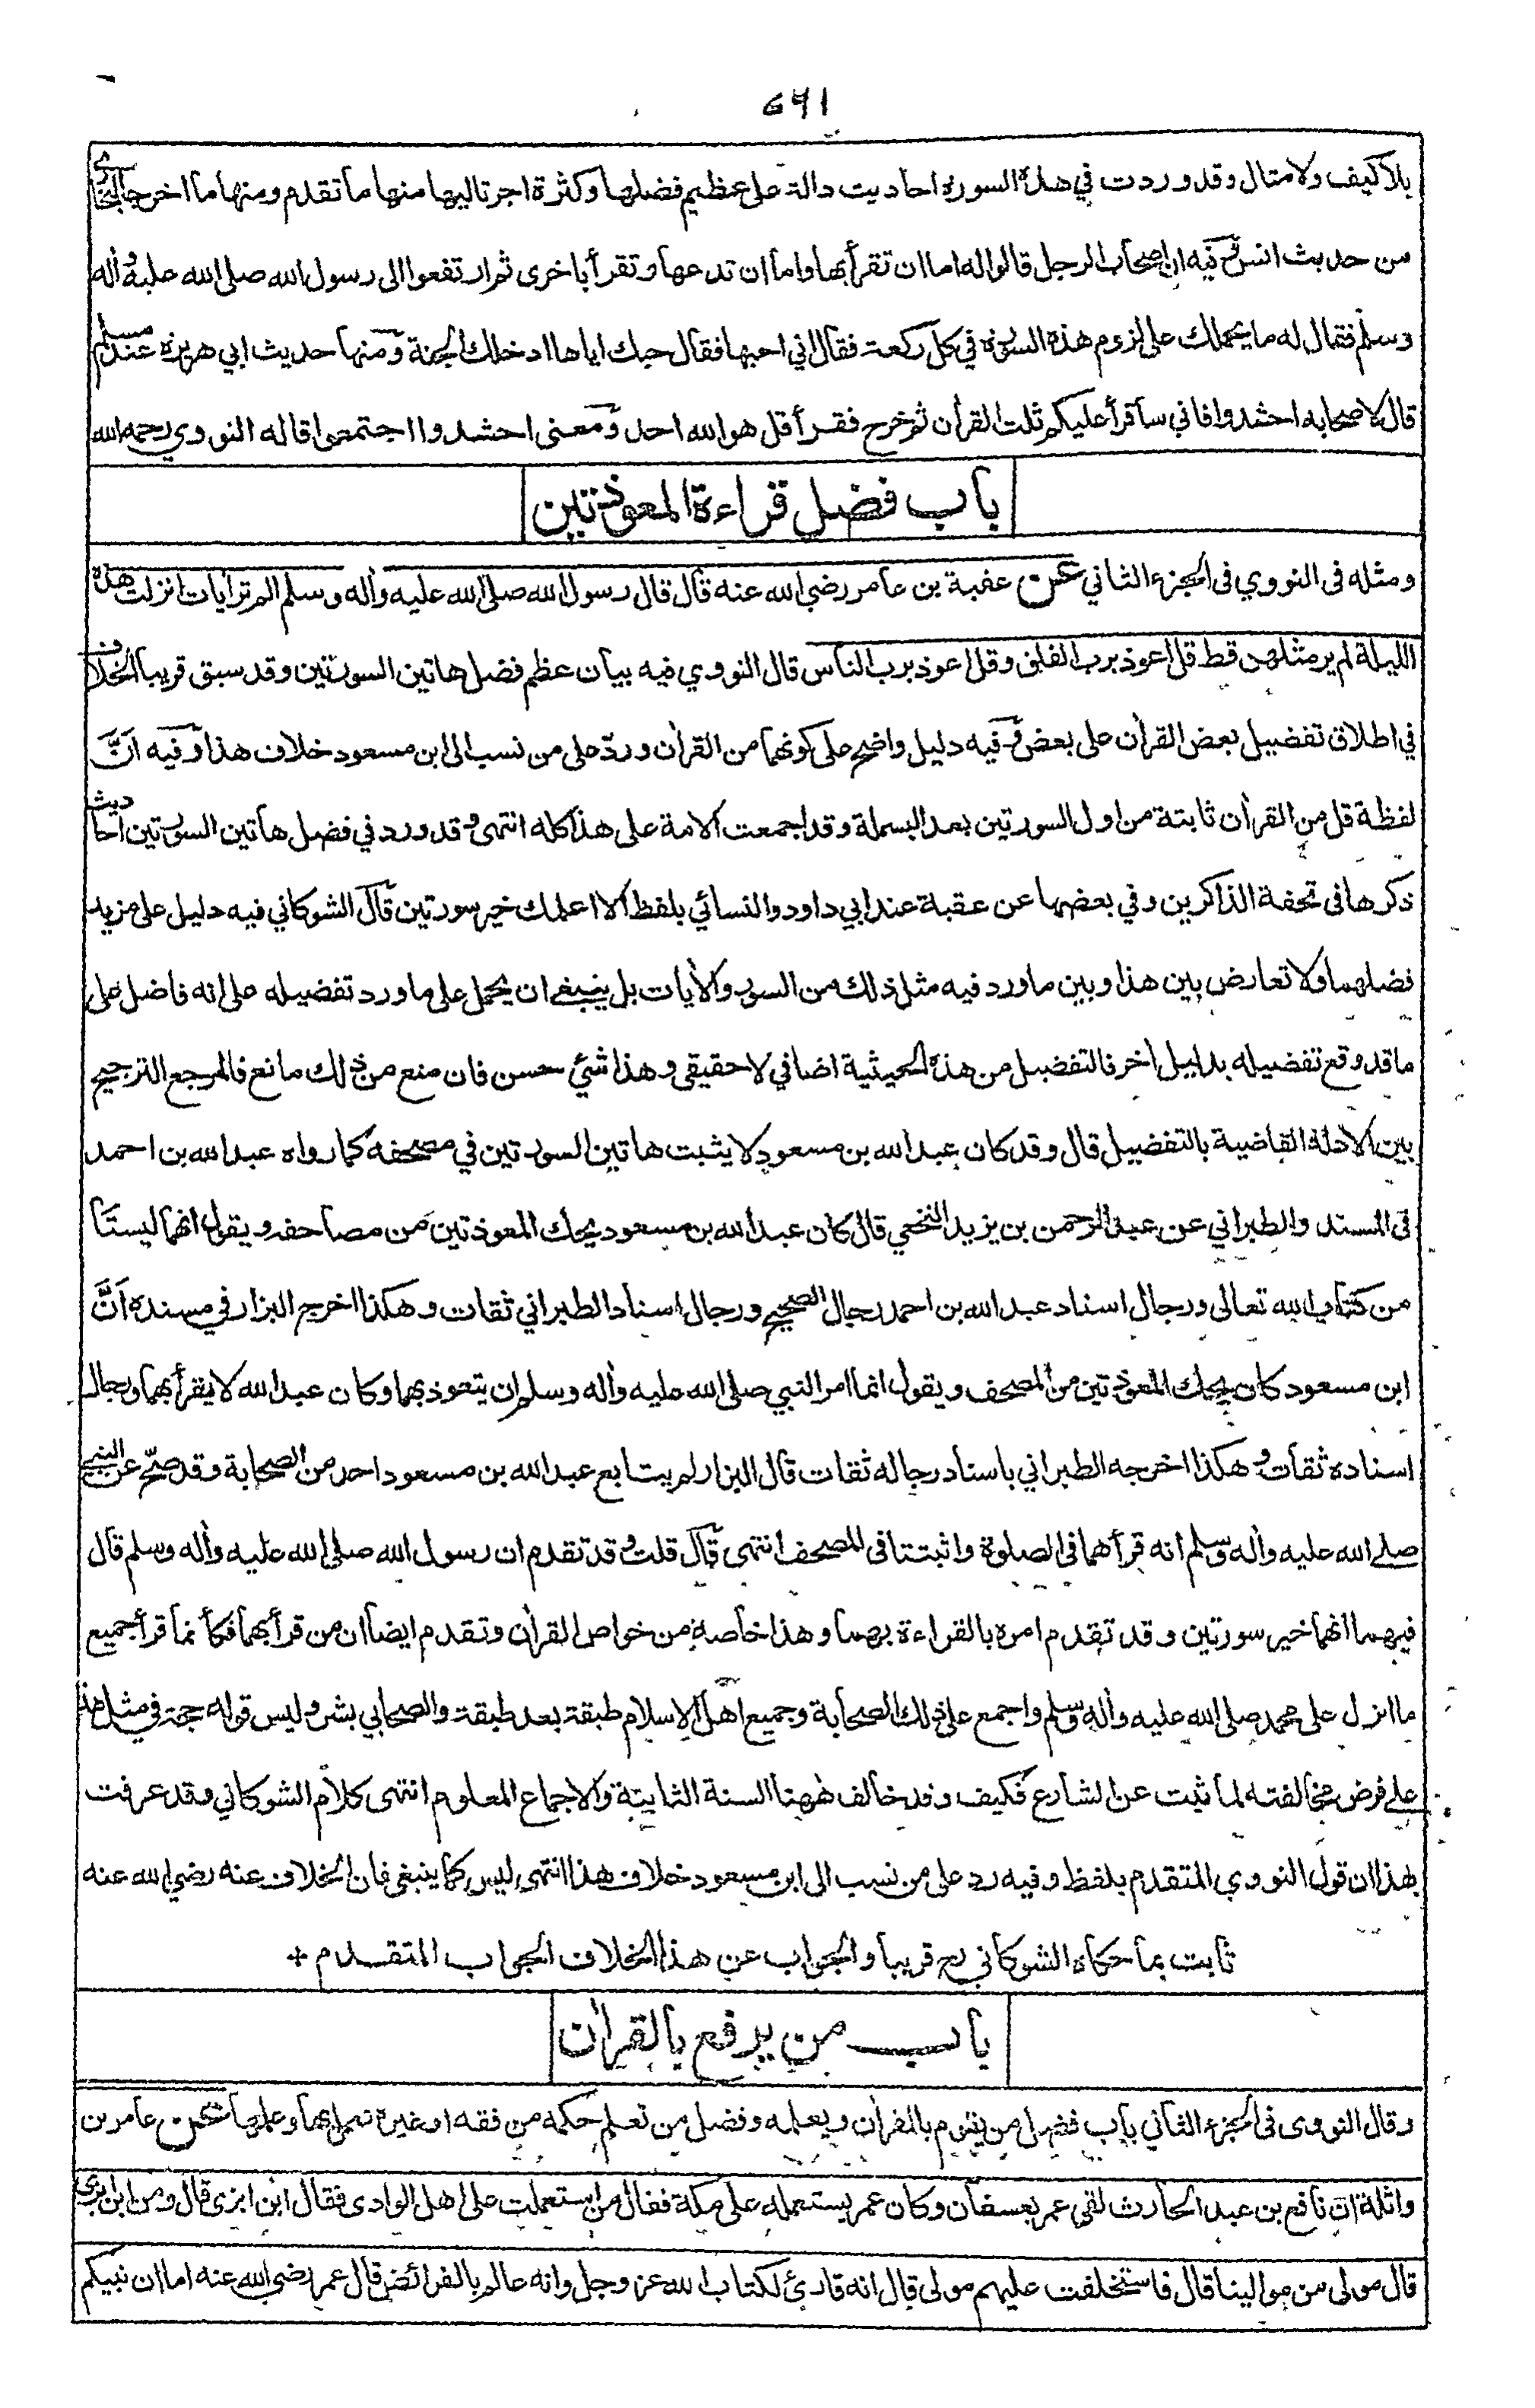 ٦٩١
بلا كيف ولا مثال وقد وردت في هذه السورة احاديث دالة على عظيم فضلها وكثرة اجر تاليها منها ما تقدم ومنها ما اخرجه البخاري
من حديث انس وفيه ان اصحاب الرجل قالوا له اما ان تقرأ بها واما ان تدعها وتقرأ باخرى ثم ارتفعوا الى رسول الله صلى الله عليه وأله
وسلم فقال له ما يحملك على لزوم هذه السورة في كل ركعة فقال اني احبها فقال حبك اياها ادخلك الجنة ومنها حديث ابي هريرة عند مسلم
قال لاصحابه احشدوا فاني سأقرأ عليكم ثلث القرأن ثم خرج فقرأ قل هو الله احد ومعنى احشدوا اجتمعوا قاله النووي رحمه الله
باب فضل قراءة المعوذتين
ومثله فى النووي فى الجزء الثاني عن عقبة بن عامر رضي الله عنه قال قال رسول الله صلى الله عليه وأله وسلم الم تر أيات انزلت هذه
الليلة لم ير مثلهن قط قل اعوذ برب الفلق وقل اعوذ برب الناس قال النووي فيه بيان عظم فضل هاتين السورتين وقد سبق قريبا الخلاف
في اطلاق تفضيل بعض القرأن على بعض وفيه دليل واضح على كونهما من القرأن وردّ على من نسب الى ابن مسعود خلاف هذا وفيه انَّ
لفظة قل من القرأن ثابتة من اول السورتين بعد البسملة وقد اجمعت الامة على هذا كله انتهى وقد ورد في فضل هاتين السورتين احاديث
ذكرها فى تحفة الذاكرين وفي بعضها عن عقبة عند ابي داود والنسائي بلفظ الا اعلمك خير سورتين قال الشوكاني فيه دليل على مزيد
فضلهما ولا تعارض بين هذا وبين ما ورد فيه مثل ذلك من السور والأيات بل ينبغي ان يحمل على ما ورد تفضيله على انه فاضل على
ما قد وقع تفضيله بدليل أخر فالتفضيل من هذه الحيثية اضافي لا حقيقي وهذا شئ حسن فان منع من ذلك مانع فالمرجع الترجيح
بين الادلة القاضية بالتفضيل قال وقد كان عبد الله بن مسعود لا يثبت هاتين السورتين في مصحفه كما رواه عبد الله بن احمد
فى المسند والطبراني عن عبد الرحمن بن يزيد النخعي قال كان عبد الله بن مسعود يحك المعوذتين من مصاحفه ويقول انهما ليستا
من كتاب الله تعالى ورجال اسناد عبد الله بن احمد رجال الصحيح ورجال اسناد الطبراني ثقات وهكذا اخرج البزار في مسنده انَّ
ابن مسعود كان يحك المعوذتين من المصحف ويقول انما امر النبي صلى الله عليه وأله وسلم ان يتعوذ بهما وكان عبد الله لا يقرأ بهما ورجال
اسناده ثقات وهكذا اخرجه الطبراني باسناد رجاله ثقات قال البزار لم يتابع عبد الله بن مسعود احد من الصحابة وقد صحّ عن النبي
صلى الله عليه وأله وسلم انه قرأهما فى الصلوة واثبتتا فى المصحف انتهى قال قلت وقد تقدم ان رسول الله صلى الله عليه وأله وسلم قال
فيهما انهما خير سورتين وقد تقدم امره بالقراءة بهما وهذا خاصة من خواص القرأن وتقدم ايضا ان من قرأ بهما فكأنما قرأ جميع
ما انزل على محمد صلى الله عليه وأله وسلم واجمع على ذلك الصحابة وجميع اهل الاسلام طبقة بعد طبقة والصحابي بشر وليس قوله حجة في مثل هذا
على فرض مخالفته لما ثبت عن الشارع فكيف وقد خالف ههنا السنة الثابتة والاجماع المعلوم انتهى كلام الشوكاني وقد عرفت
بهذا ان قول النووي المتقدم بلفظ وفيه رد على من نسب الى ابن مسعود خلاف هذا انتهى ليس كما ينبغي فان الخلاف عنه رضي الله عنه
ثابت بما حكاه الشوكاني رح قريبا والجواب عن هذا الخلاف الجواب المتقدم +
باب من يرفع بالقرأن
وقال النووى فى الجزء الثاني باب فضل من يقوم بالقرأن ويعلمه وفضل من تعلم حكمة من فقه او غيره فعمل بها وعلمها عن عامر بن
واثلة ان نافع بن عبد الحارث لقي عمر بعسفان وكان عمر يستعمله على مكة فقال من استعملت على اهل الوادى فقال ابن ابزى قال ومن ابن ابزى
قال مولى من موالينا قال فاستخلفت عليهم مولى قال انه قارئ لكتاب الله عز وجل وانه عالم بالفرائض قال عمر رضي الله عنه اما ان نبيكم